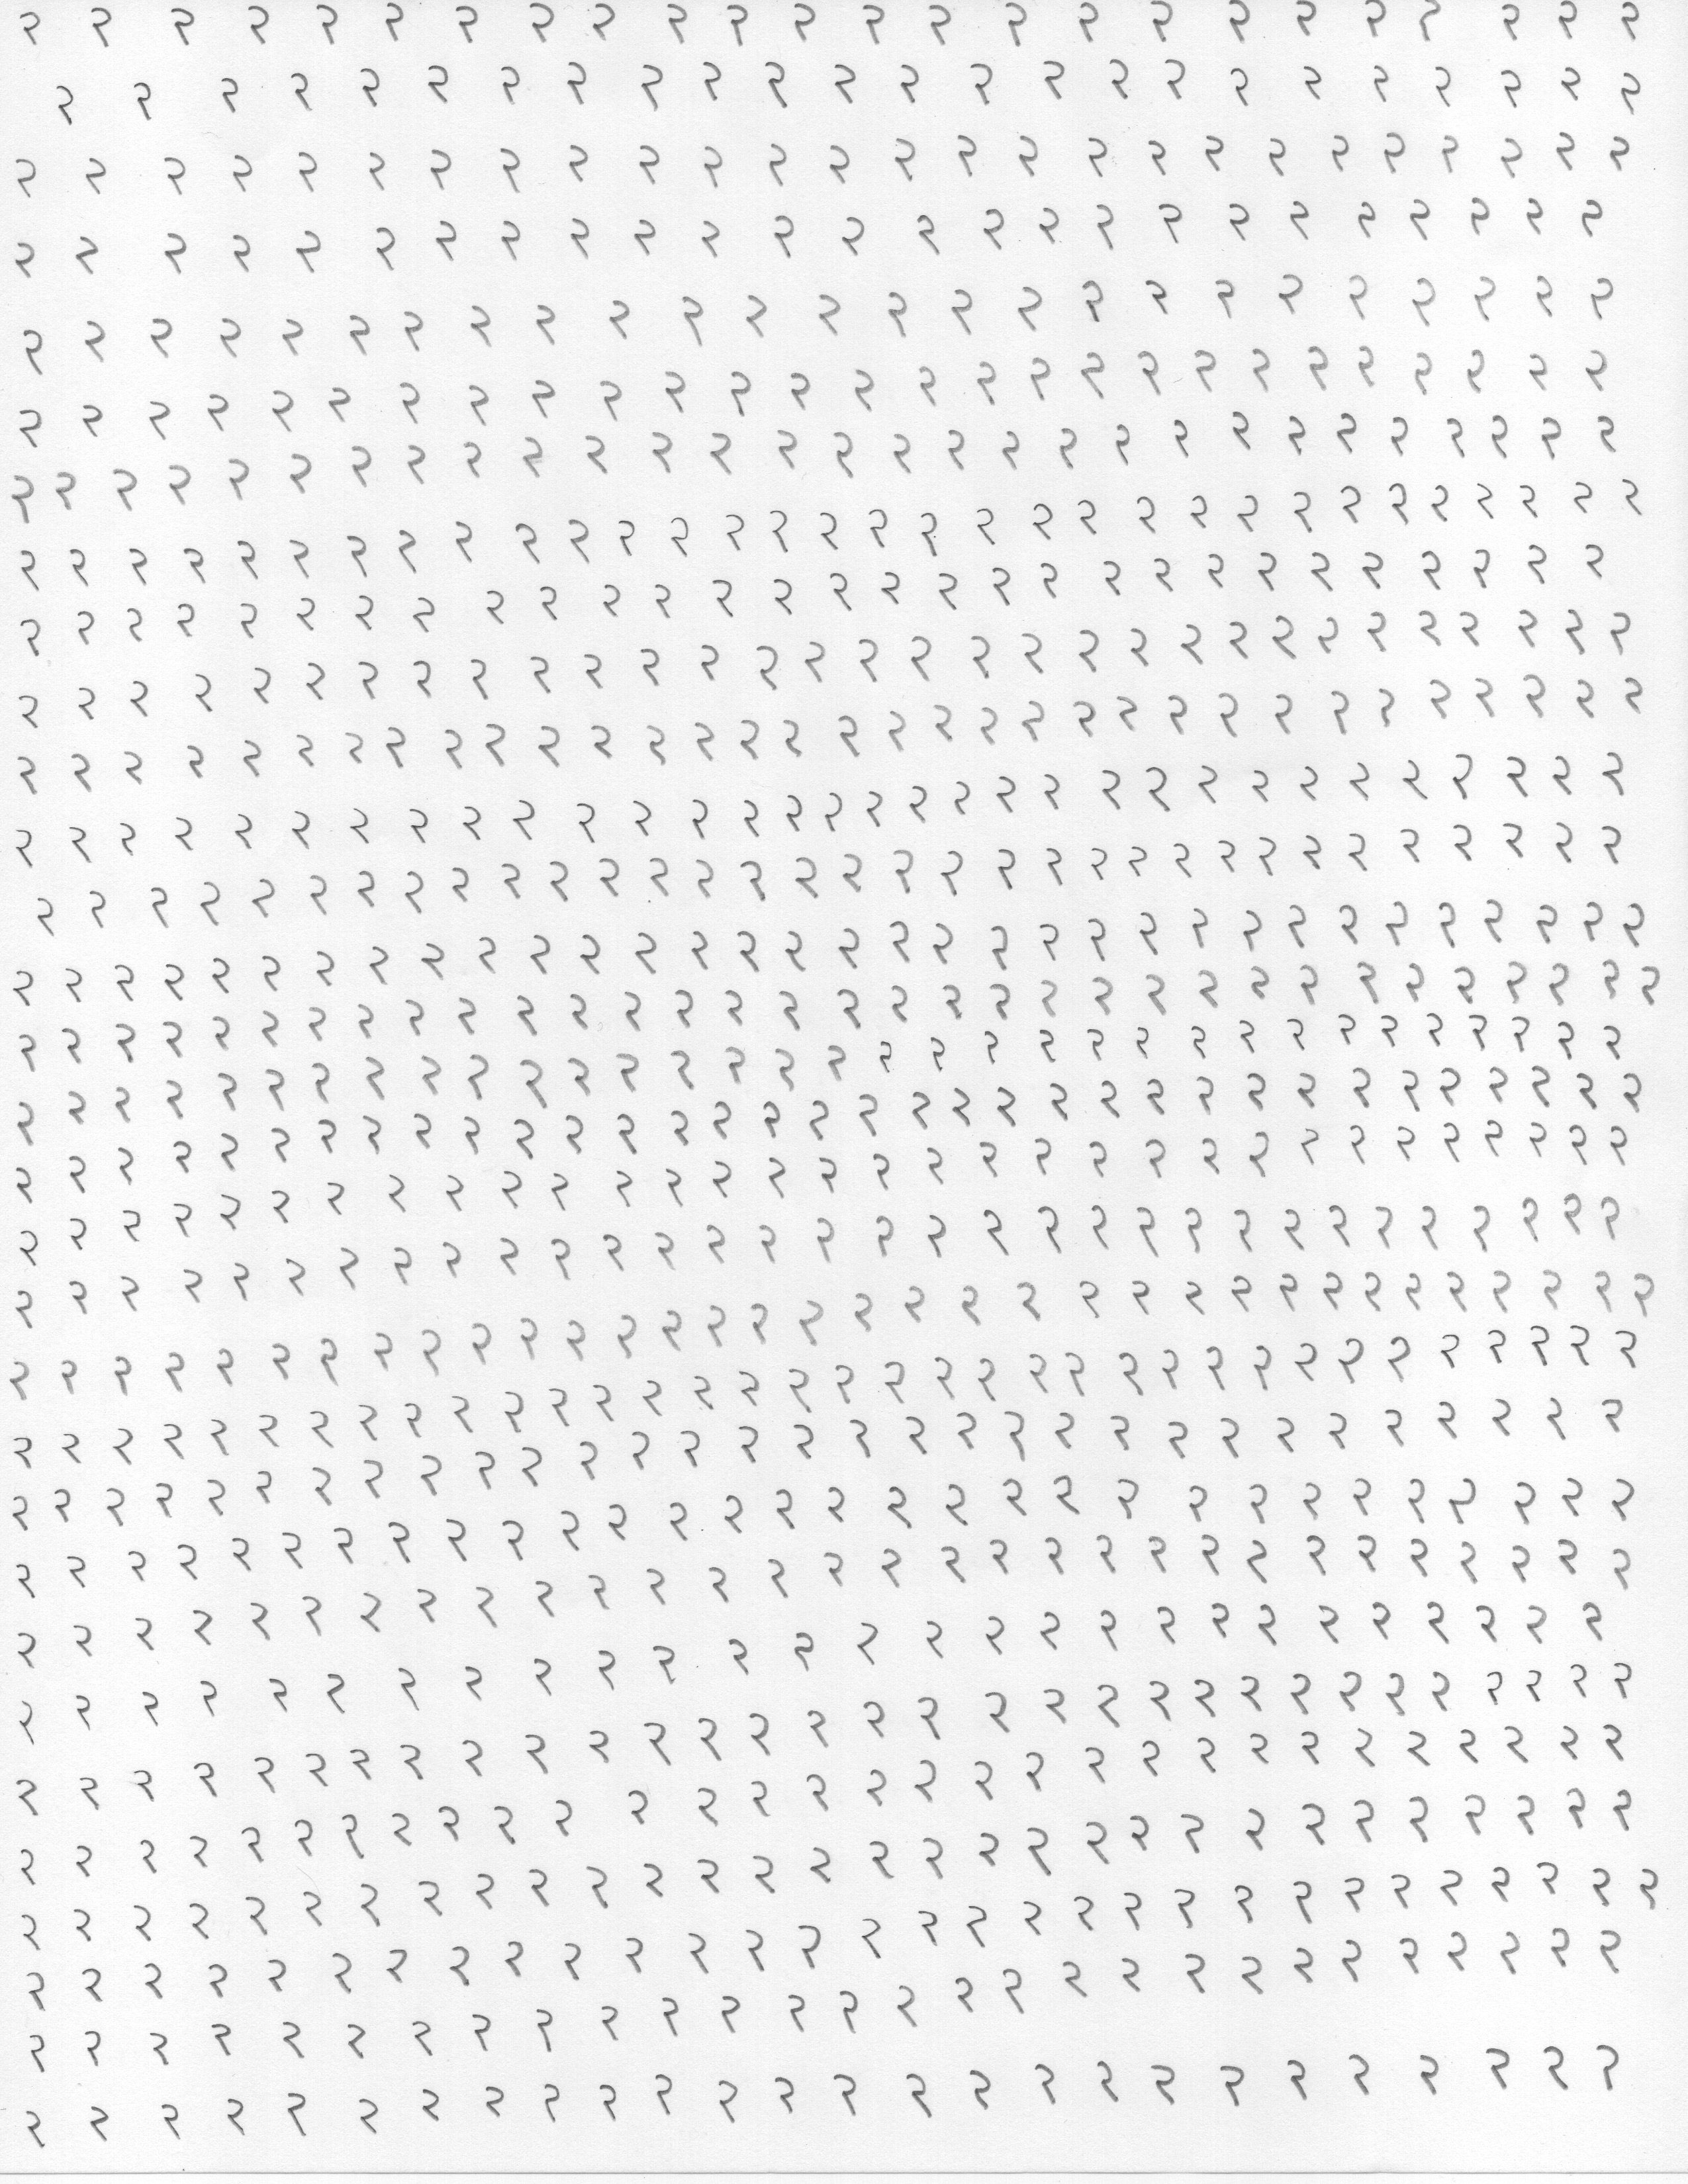 २ २ २ २ २ २ २ २ २ २ २ २ २ २ २ २ २ २ २ २ २ २ २ २
२ २ २ २ २ २ २ २ २ २ २ २ २ २ २ २ २ २ २ २ २ २ २ २
२ २ २ २ २ २ २ २ २ २ २ २ २ २ २ २ २ २ २ २ २ २ २ २ २ २
२ २ २ २ २ २ २ २ २ २ २ २ २ २ २ २ २ २ २ २ २ २ २ २ २
२ २ २ २ २ २ २ २ २ २ २ २ २ २ २ २ २ २ २ २ २ २ २ २ २
२ २ २ २ २ २ २ २ २ २ २ २ २ २ २ २ २ २ २ २ २ २ २ २ २ २ २
२ २ २ २ २ २ २ २ २ २ २ २ २ २ २ २ २ २ २ २ २ २ २ २ २ २ २ २ २
२ २ २ २ २ २ २ २ २ २ २ २ २ २ २ २ २ २ २ २ २ २ २ २ २ २ २ २ २ २ २ २
२ २ २ २ २ २ २ २ २ २ २ २ २ २ २ २ २ २ २ २ २ २ २ २ २ २ २ २ २
२ २ २ २ २ २ २ २ २ २ २ २ २ २ २ २ २ २ २ २ २ २ २ २ २ २ २ २ २ २ २
२ २ २ २ २ २ २ २ २ २ २ २ २ २ २ २ २ २ २ २ २ २ २ २ २ २ २ २ २ २ २ २ २
२ २ २ २ २ २ २ २ २ २ २ २ २ २ २ २ २ २ २ २ २ २ २ २ २ २ २ २ २ २ २ २
२ २ २ २ २ २ २ २ २ २ २ २ २ २ २ २ २ २ २ २ २ २ २ २ २ २ २ २ २ २ २ २ २
२ २ २ २ २ २ २ २ २ २ २ २ २ २ २ २ २ २ २ २ २ २ २ २ २ २ २ २ २ २ २ २ २
२ २ २ २ २ २ २ २ २ २ २ २ २ २ २ २ २ २ २ २ २ २ २ २ २ २ २ २ २ २ २ २ २
२ २ २ २ २ २ २ २ २ २ २ २ २ २ २ २ २ २ २ २ २ २ २ २ २ २ २ २ २ २ २ २ २
२ २ २ २ २ २ २ २ २ २ २ २ २ २ २ २ २ २ २ २ २ २ २ २ २ २ २ २ २ २ २ २ २ २
२ २ २ २ २ २ २ २ २ २ २ २ २ २ २ २ २ २ २ २ २ २ २ २ २ २ २ २ २ २ २ २
२ २ २ २ २ २ २ २ २ २ २ २ २ २ २ २ २ २ २ २ २ २ २ २ २ २ २ २ २ २ २ २
२ २ २ २ २ २ २ २ २ २ २ २ २ २ २ २ २ २ २ २ २ २ २ २ २ २ २ २ २ २ २ २ २ २
२ २ २ २ २ २ २ २ २ २ २ २ २ २ २ २ २ २ २ २ २ २ २ २ २ २ २ २ २ २ २ २ २ २ २
२ २ २ २ २ २ २ २ २ २ २ २ २ २ २ २ २ २ २ २ २ २ २ २ २ २ २ २ २ २ २
२ २ २ २ २ २ २ २ २ २ २ २ २ २ २ २ २ २ २ २ २ २ २ २ २ २ २ २ २ २
२ २ २ २ २ २ २ २ २ २ २ २ २ २ २ २ २ २ २ २ २ २ २ २ २ २ २ २ २ २
२ २ २ २ २ २ २ २ २ २ २ २ २ २ २ २ २ २ २ २ २ २ २ २ २ २ २
२ २ २ २ २ २ २ २ २ २ २ २ २ २ २ २ २ २ २ २ २ २ २ २ २ २ २ २ २ २ २
२ २ २ २ २ २ २ २ २ २ २ २ २ २ २ २ २ २ २ २ २ २ २ २ २ २ २ २ २ २
२ २ २ २ २ २ २ २ २ २ २ २ २ २ २ २ २ २ २ २ २ २ २ २ २ २ २ २ २ २
२ २ २ २ २ २ २ २ २ २ २ २ २ २ २ २ २ २ २ २ २ २ २ २ २ २ २ २ २ २
२ २ २ २ २ २ २ २ २ २ २ २ २ २ २ २ २ २ २ २ २ २ २ २ २ २ २ २
२ २ २ २ २ २ २ २ २ २ २ २ २ २ २ २ २ २ २ २ २ २ २ २ २ २